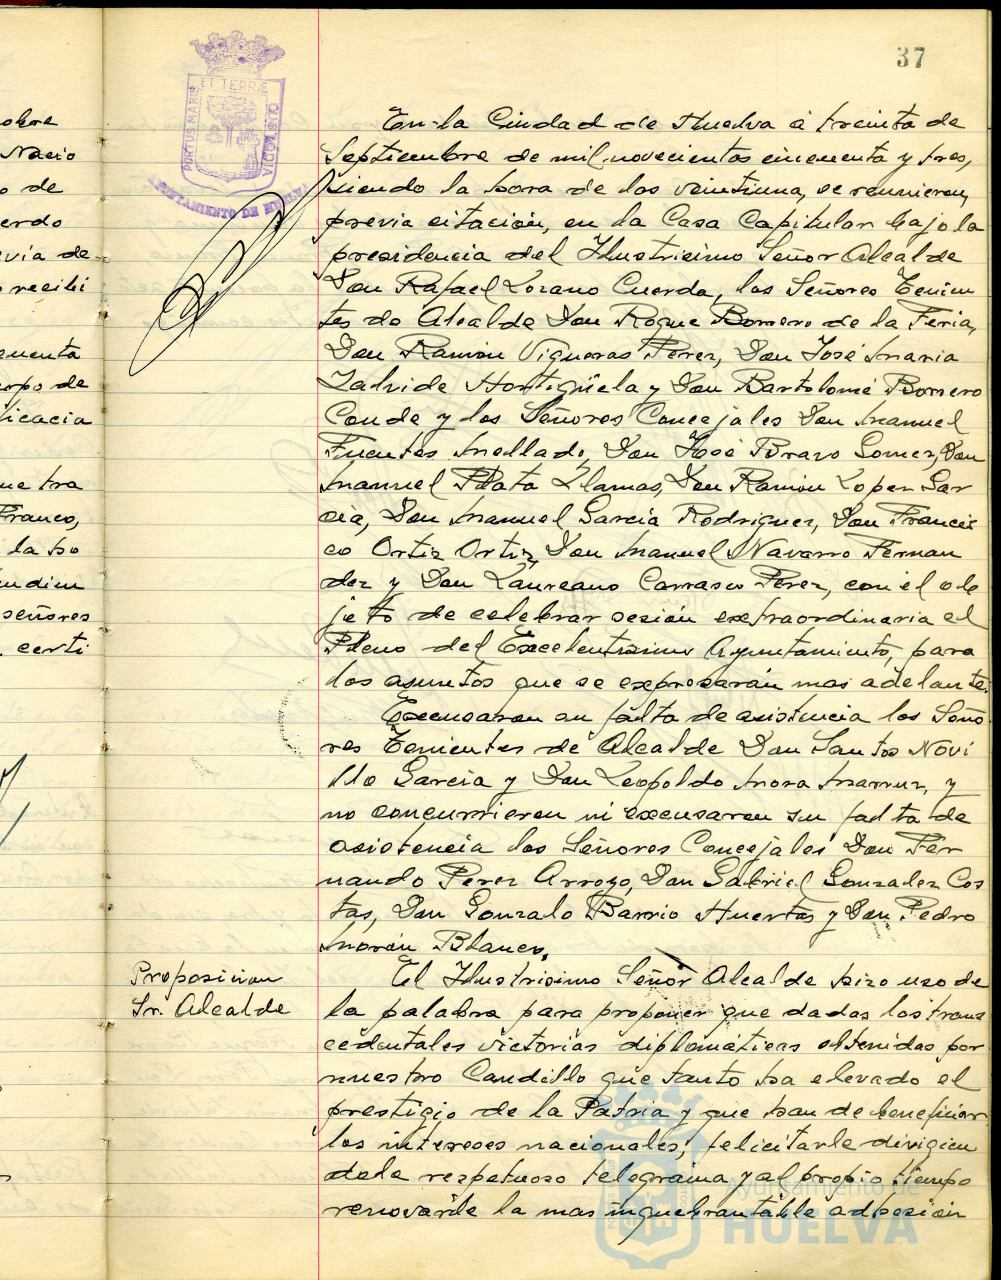 37
PORTUS MARIS
ET TERRÆ
CUSTODIA
AYUNTAMIENTO DE HUELVA
obre
Nacio
o de
erdo
evia de
recibi
cuenta
erpo de
licacia
ue tra
Franco,
la ho
undien
señores
certi
En la Ciudad de Huelva a treinta de
Septiembre de mil novecientos cincuenta y tres,
siendo la hora de las veintiuna, se reunieron,
previa citación, en la Casa Capitular bajo la
presidencia del Ilustrisimo Señor Alcalde
Don Rafael Lozano Cuerda, los Señores Tenien
tes de Alcalde Don Roque Borrero de la Feria,
Don Ramón Vigueras Perez, Don José Maria
Zalvide Hortigüela y Don Bartolomé Borrero
Conde y los Señores Concejales Don Manuel
Fuentes Mellado, Don José Bravo Gomez, Don
Manuel Plata Llamas, Don Ramón Lopez Gar
cia, Don Manuel Garcia Rodriguez, Don Francis
co Ortiz Ortiz, Don Manuel Navarro Fernan
dez y Don Laureano Carrasco Perez, con el ob
jeto de celebrar sesión extraordinaria el
Pleno del Excelentisimo Ayuntamiento, para
los asuntos que se expresarán mas adelante.
Excusaron su falta de asistencia los Seño
res Tenientes de Alcalde Don Santos Novi
llo Garcia y Don Leopoldo Mora, y
no concurrieron ni excusaron su falta de
asistencia los Señores Concejales Don Fer
nando Perez Arroyo, Don Gabriel Gonzalez Cos
tas, Don Gonzalo Barrio Huertas y Don Pedro
Morón Blanco.
Proposicion
Sr. Alcalde
El Ilustrisimo Señor Alcalde hizo uso de
la palabra para proponer que dadas las trans
cedentales victorias diplomáticas obtenidas por
nuestro Caudillo que tanto ha elevado el
prestigio de la Patria y que han de beneficiar
los intereses nacionales, felicitarle dirigien
dole respetuoso telegrama y al propio tiempo
renovarle la mas inquebrantable adhesión
Ayuntamiento de
HUELVA